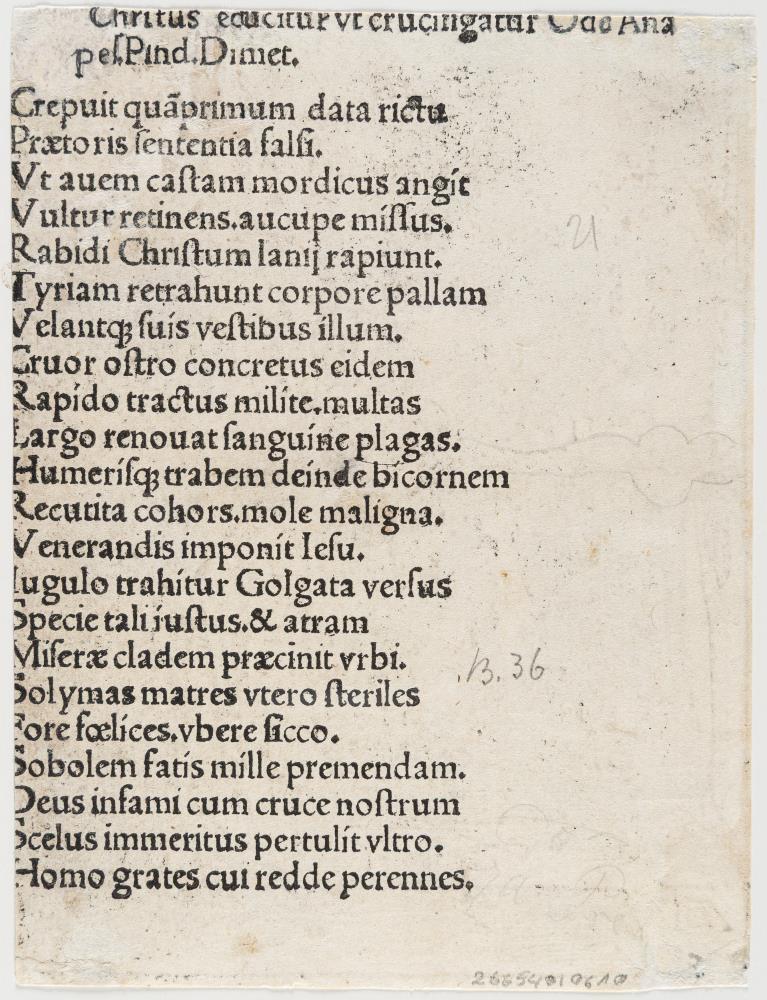 Chriſtus educitur vt crucifigatur Ode Ana
peſ.Pind.Dimet.
Crepuit quãprimum data rictu
Prætoris ſententia falſi.
Vt auem caſtam mordicus angit
Vultur retinens.aucupe miſſus.
Rabidi Chriſtum lanij rapiunt.
Tyriam retrahunt corpore pallam
Velantqꝫ ſuis veſtibus illum.
Cruor oſtro concretus eidem
Rapido tractus milite.multas
Largo renouat ſanguine plagas.
Humeriſqꝫ trabem deinde bicornem
Recutita cohors.mole maligna.
Venerandis imponit Ieſu.
Iugulo trahitur Golgata verſus
Specie tali iuſtus.& atram
Miſeræ cladem præcinit vrbi.
Solymas matres vtero ſteriles
Fore fœlices.vbere ſicco.
Sobolem fatis mille premendam.
Deus infami cum cruce noſtrum
Scelus immeritus pertulit vltro.
Homo grates cui redde perennes.
21
.B. 36